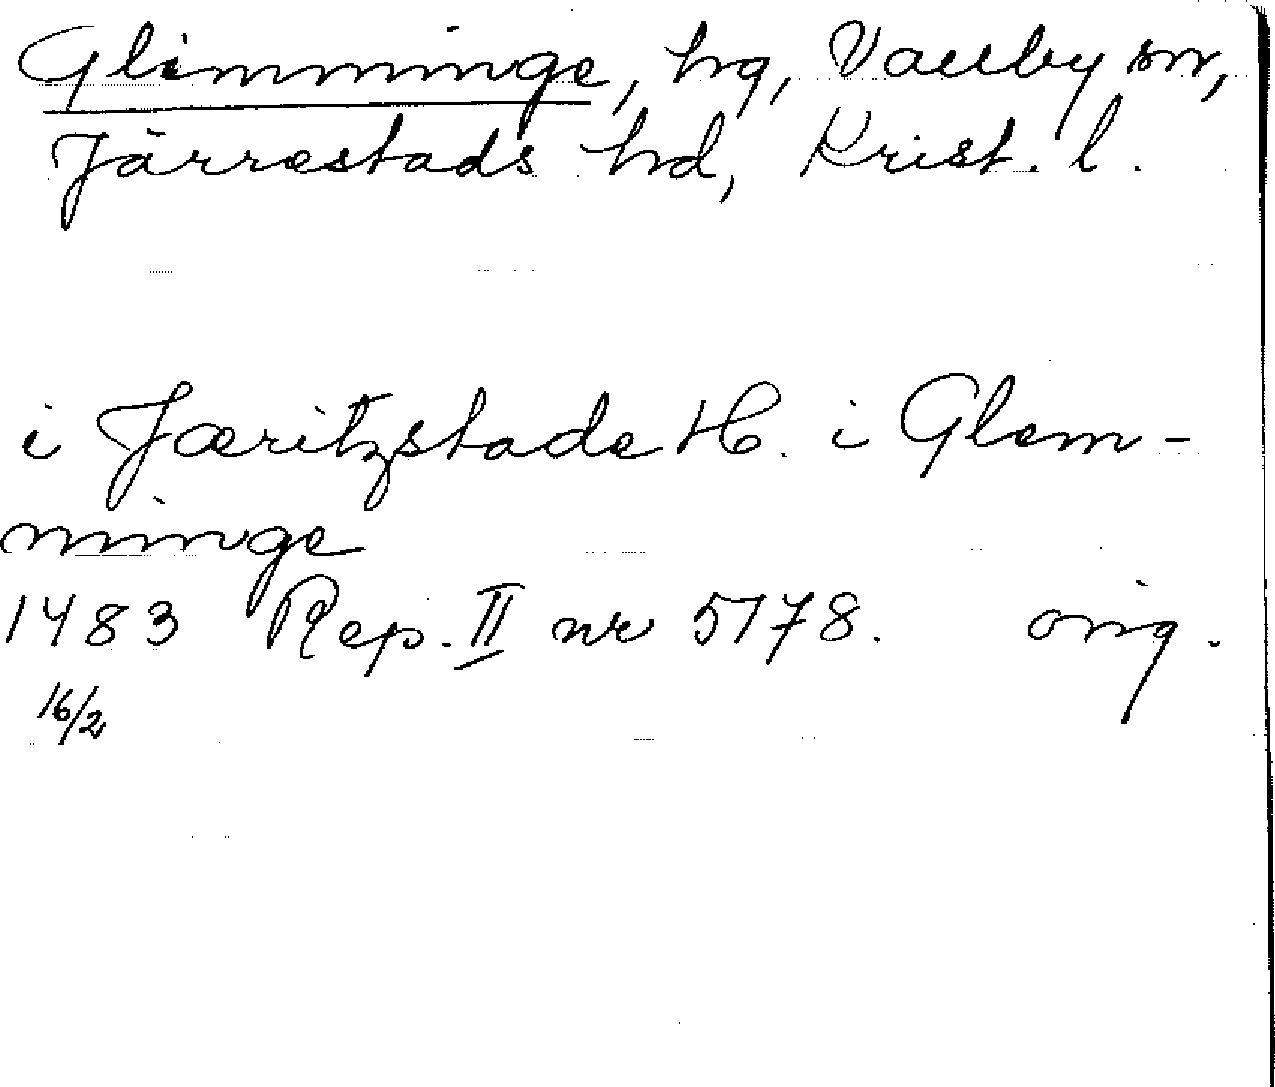 Glimminge, hg, Vallby sn,
Järrestads hd, Krist. l.
i Jæritzstade H. i Glem-
minge
1483 Rep. II nr 5178. orig.
16/2